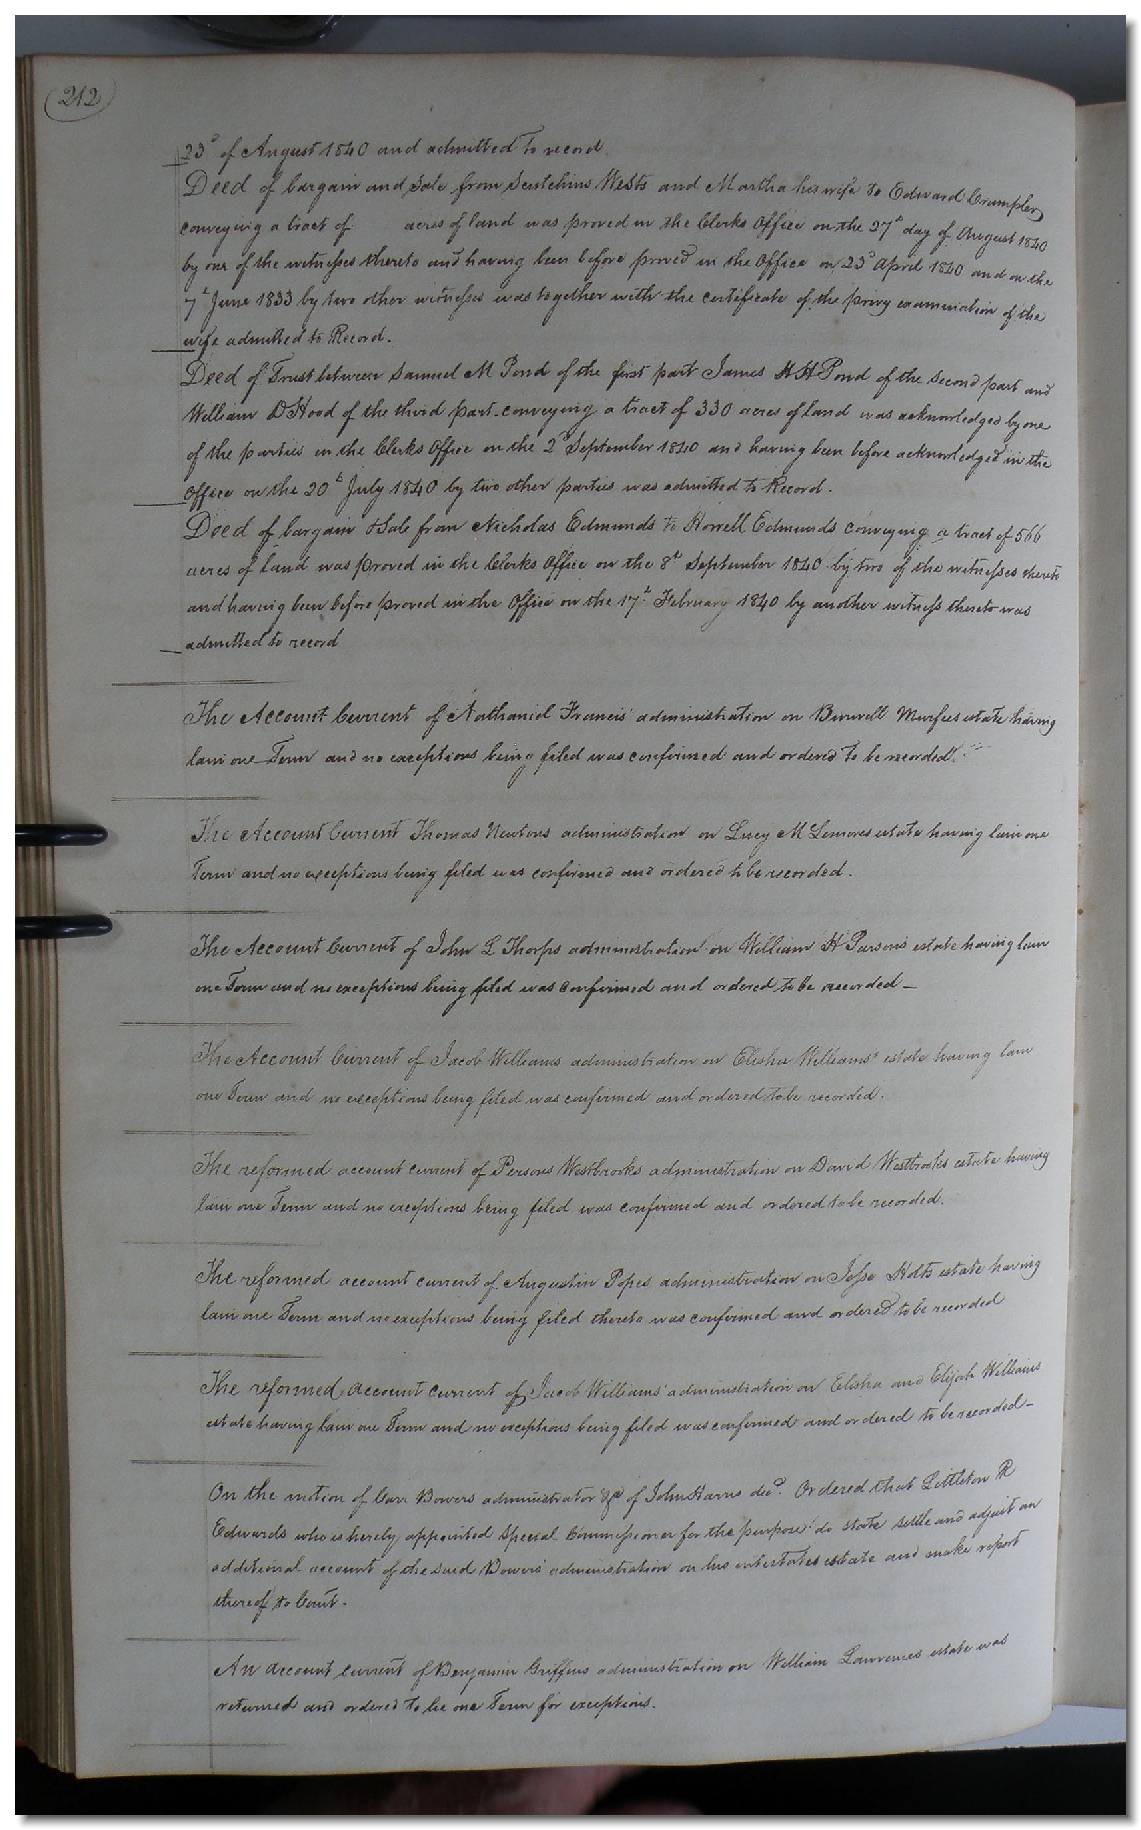 212
23d of August 1840 and admitted to record.
Deed of bargain and Sale from Wests and Martha his wife to Edward Crumpler
conveying a tract of acres of land was proved in the Clerks Office on the 27th day of August 1840
by one of the witnesses thereto and having been before proved in the Office on 23d April 1840 and on the
7th June 1833 by two other witnesses was together with the certificate of the privy examination of the
wife admitted to Record.
Deed of Trust between Samuel M Pond of the first part James H H Pond of the second part and
William D Hood of the third part conveying a tract of 330 acres of land was acknowledged by one
of the parties in the Clerks Office on the 2d September 1840 and having been before acknowledged in the
Office on the 20th July 1840 by two other parties was admitted to Record.
Deed of bargain & Sale from Nicholas Edmunds to Howell Edmunds conveying a tract of 566
acres of land was proved in the Clerks Office on the 8th September 1840 by two of the witnesses thereto
and having been before proved in the Office on the 17th February 1840 by another witness thereto was
admitted to record
The Account Current of Nathaniel Francis' administration on Burwell Murfees estate having
lain one Term and no exceptions being filed was confirmed and ordered to be recorded.
The Account Current Thomas Newtons administration on Lucy M Lemores estate having lain one
Term and no exceptions being filed was confirmed and ordered to be recorded.
The Account Current of John L Thorps administration on William H Parsons estate having lain
one Term and no exceptions being filed was confirmed and ordered to be recorded –
The Account Current of Jacob Williams administration on Elisha Williams' estate having lain
one Term and no exceptions being filed was confirmed and ordered to be recorded.
The reformed account current of Persons Westbrooks administration on David Westbrooks estate having
lain one Term and no exceptions being filed was confirmed and ordered to be recorded.
The reformed account current of Augustin Popes administration on Jesse Holts estate having
lain one Term and no exceptions being filed thereto was confirmed and ordered to be recorded
The reformed account current of Jacob Williams' administration on Elisha and Elijah Williams
estate having lain one Term and no exceptions being filed was confirmed and ordered to be recorded –
On the motion of Carr Bowers administrator &c of John Harris decd. Ordered that Littleton R
Edwards who is hereby appointed Special Commissioner for the purpose do state settle and adjust an
additional account of the said Bowers' administration on his intestates estate and make report
thereof to Court.
An account current of Benjamin Griffins administration on William Lawrences estate was
returned and ordered to lie one Term for exceptions.